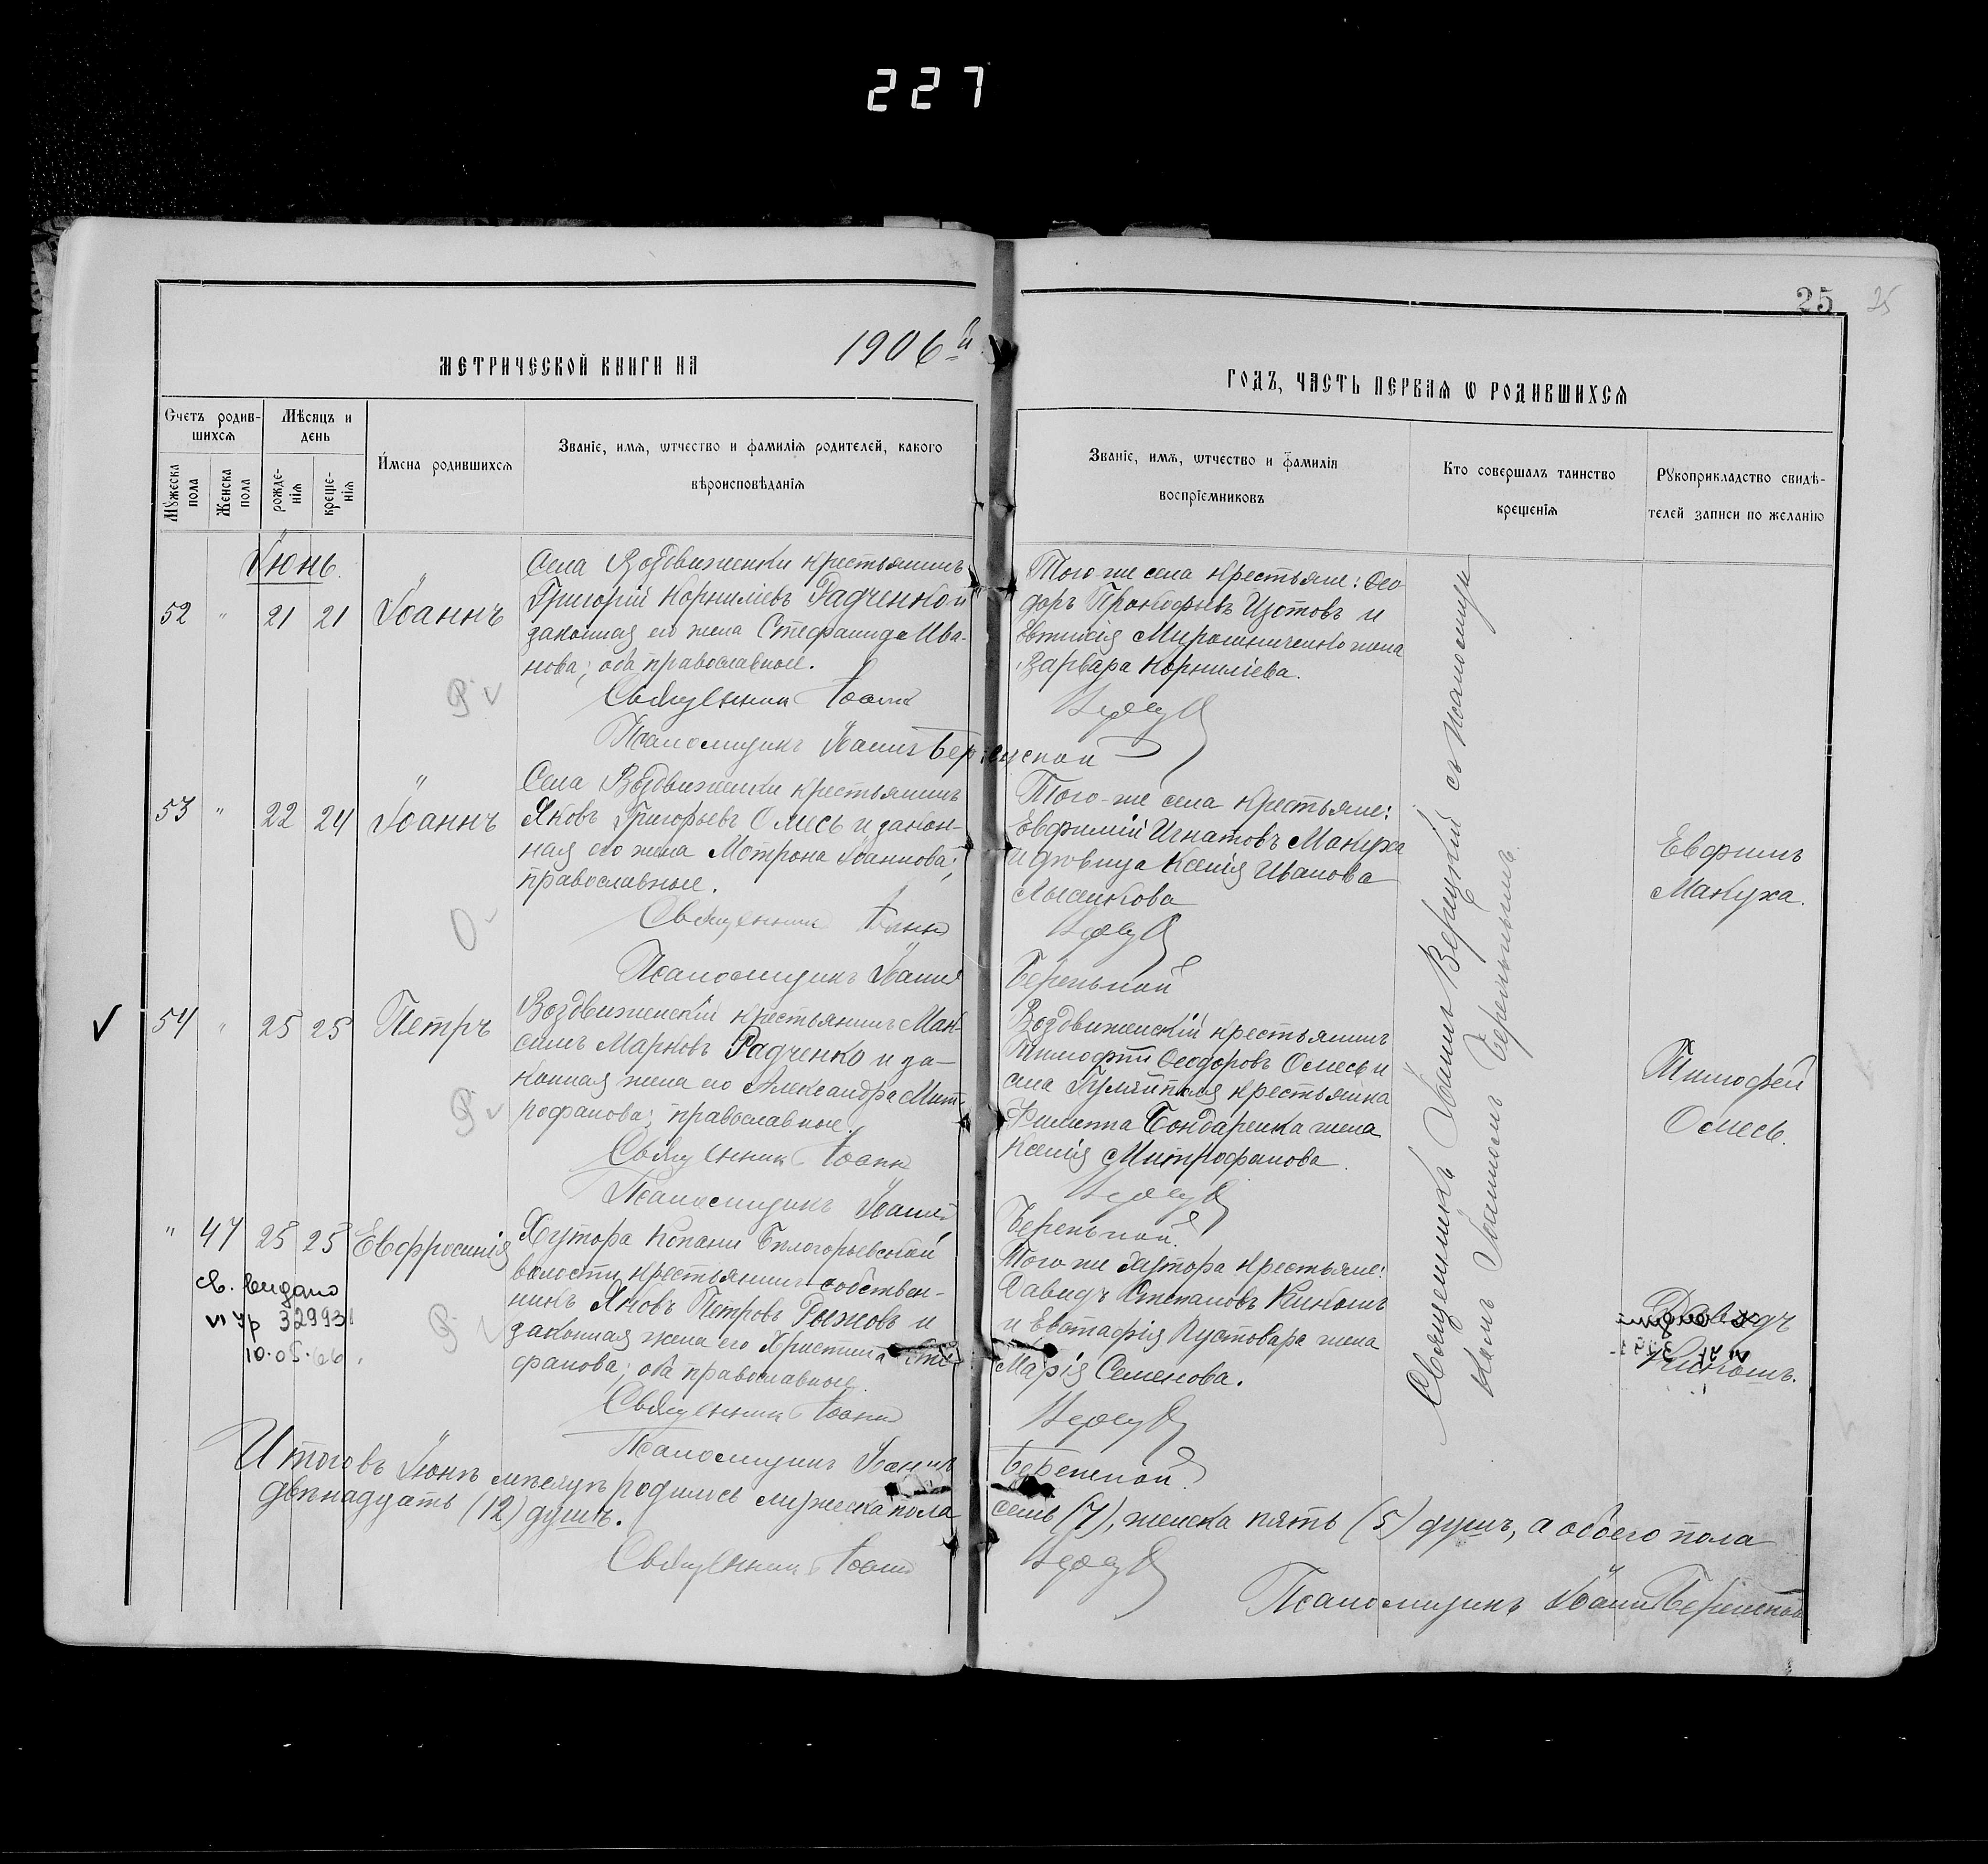 227
25
25
МЕТРИЧЕСКОЙ КНИГИ НА 1906й
ГОДЪ, ЧАСТЬ ПЕРВАЯ Ѡ РОДИВШИХСЯ
Счетъ родив-
шихся
Мѣсяцъ и
день
Мужеска
пола
Женска
пола
рожде-
нія
креще-
нія
Имена родившихся
Званіе, имя, ѡтчество и фамилія родителей, какого
вѣроисповѣданія
Званіе, имя, ѡтчество и фамилія
воспріемниковъ
Кто совершалъ таинство
крещенія
Рукоприкладство свидѣ-
телей записи по желанію
Іюнь.
52 " 21 21 Іоаннъ
Села Воздвиженки крестьянинъ
Григорій Корниліевъ Радченко и
законная его жена Стефанида Ива-
нова; оба православные.
Священник Іоанн
Псаломщикъ Іоаннъ
Того-же села крестьяне: Ѳео-
доръ Прокофьевъ Изотовъ и
Мирошниченко жена
Варвара Корниліева.
53 " 22 24 Іоаннъ
Села Воздвиженки крестьянинъ
Яковъ Григорьевъ Олесь и закон-
ная его жена Мотрона Іоаннова;
православные.
Священник Іоанн
Псаломщикъ Іоаннъ
Того-же села крестьяне:
Евфимій Игнатовъ Макуха
и дѣвица Ксенія Иванова
Лысенкова
Евфимъ
Макуха.
54 " 25 25 Петръ
Воздвиженскій крестьянинъ Мак-
симъ Марковъ Радченко и за-
конная жена его Александра Мит-
рофанова; православные.
Священник Іоанн
Псаломщикъ Іоаннъ
Воздвиженскій крестьянинъ
Тимофѣй Ѳеодоровъ Олесь и
села Гуляйполя крестьянина
Филиппа Бондаренка жена
Ксенія Митрофанова.
Тимофей
Олесь.
" 47 25 25 Евфросинія
Хутора Копани Бѣлогорьевской
волости крестьянинъ собствен-
никъ Яковъ Петровъ Рыжовъ и
законная жена его Христина Сте-
фанова; оба православные.
Священник Іоанн
Псаломщикъ Іоаннъ
Того же хутора крестьяне:
Давидъ Степановъ Кикошъ
и Евстафія Пустовара жена
Марія Семенова.
Давидъ
Кикошъ.
св. видано
32993
10.05.66
Священникъ Іоаннъ съ псаломщи-
комъ Іоанномъ
Итого въ Іюнѣ мѣсяцѣ родилось мужеска пола семь (7), женска пять (5) душъ, а обоего пола
двѣнадцать (12) душъ.
Священник Іоанн
Псаломщикъ Іоаннъ